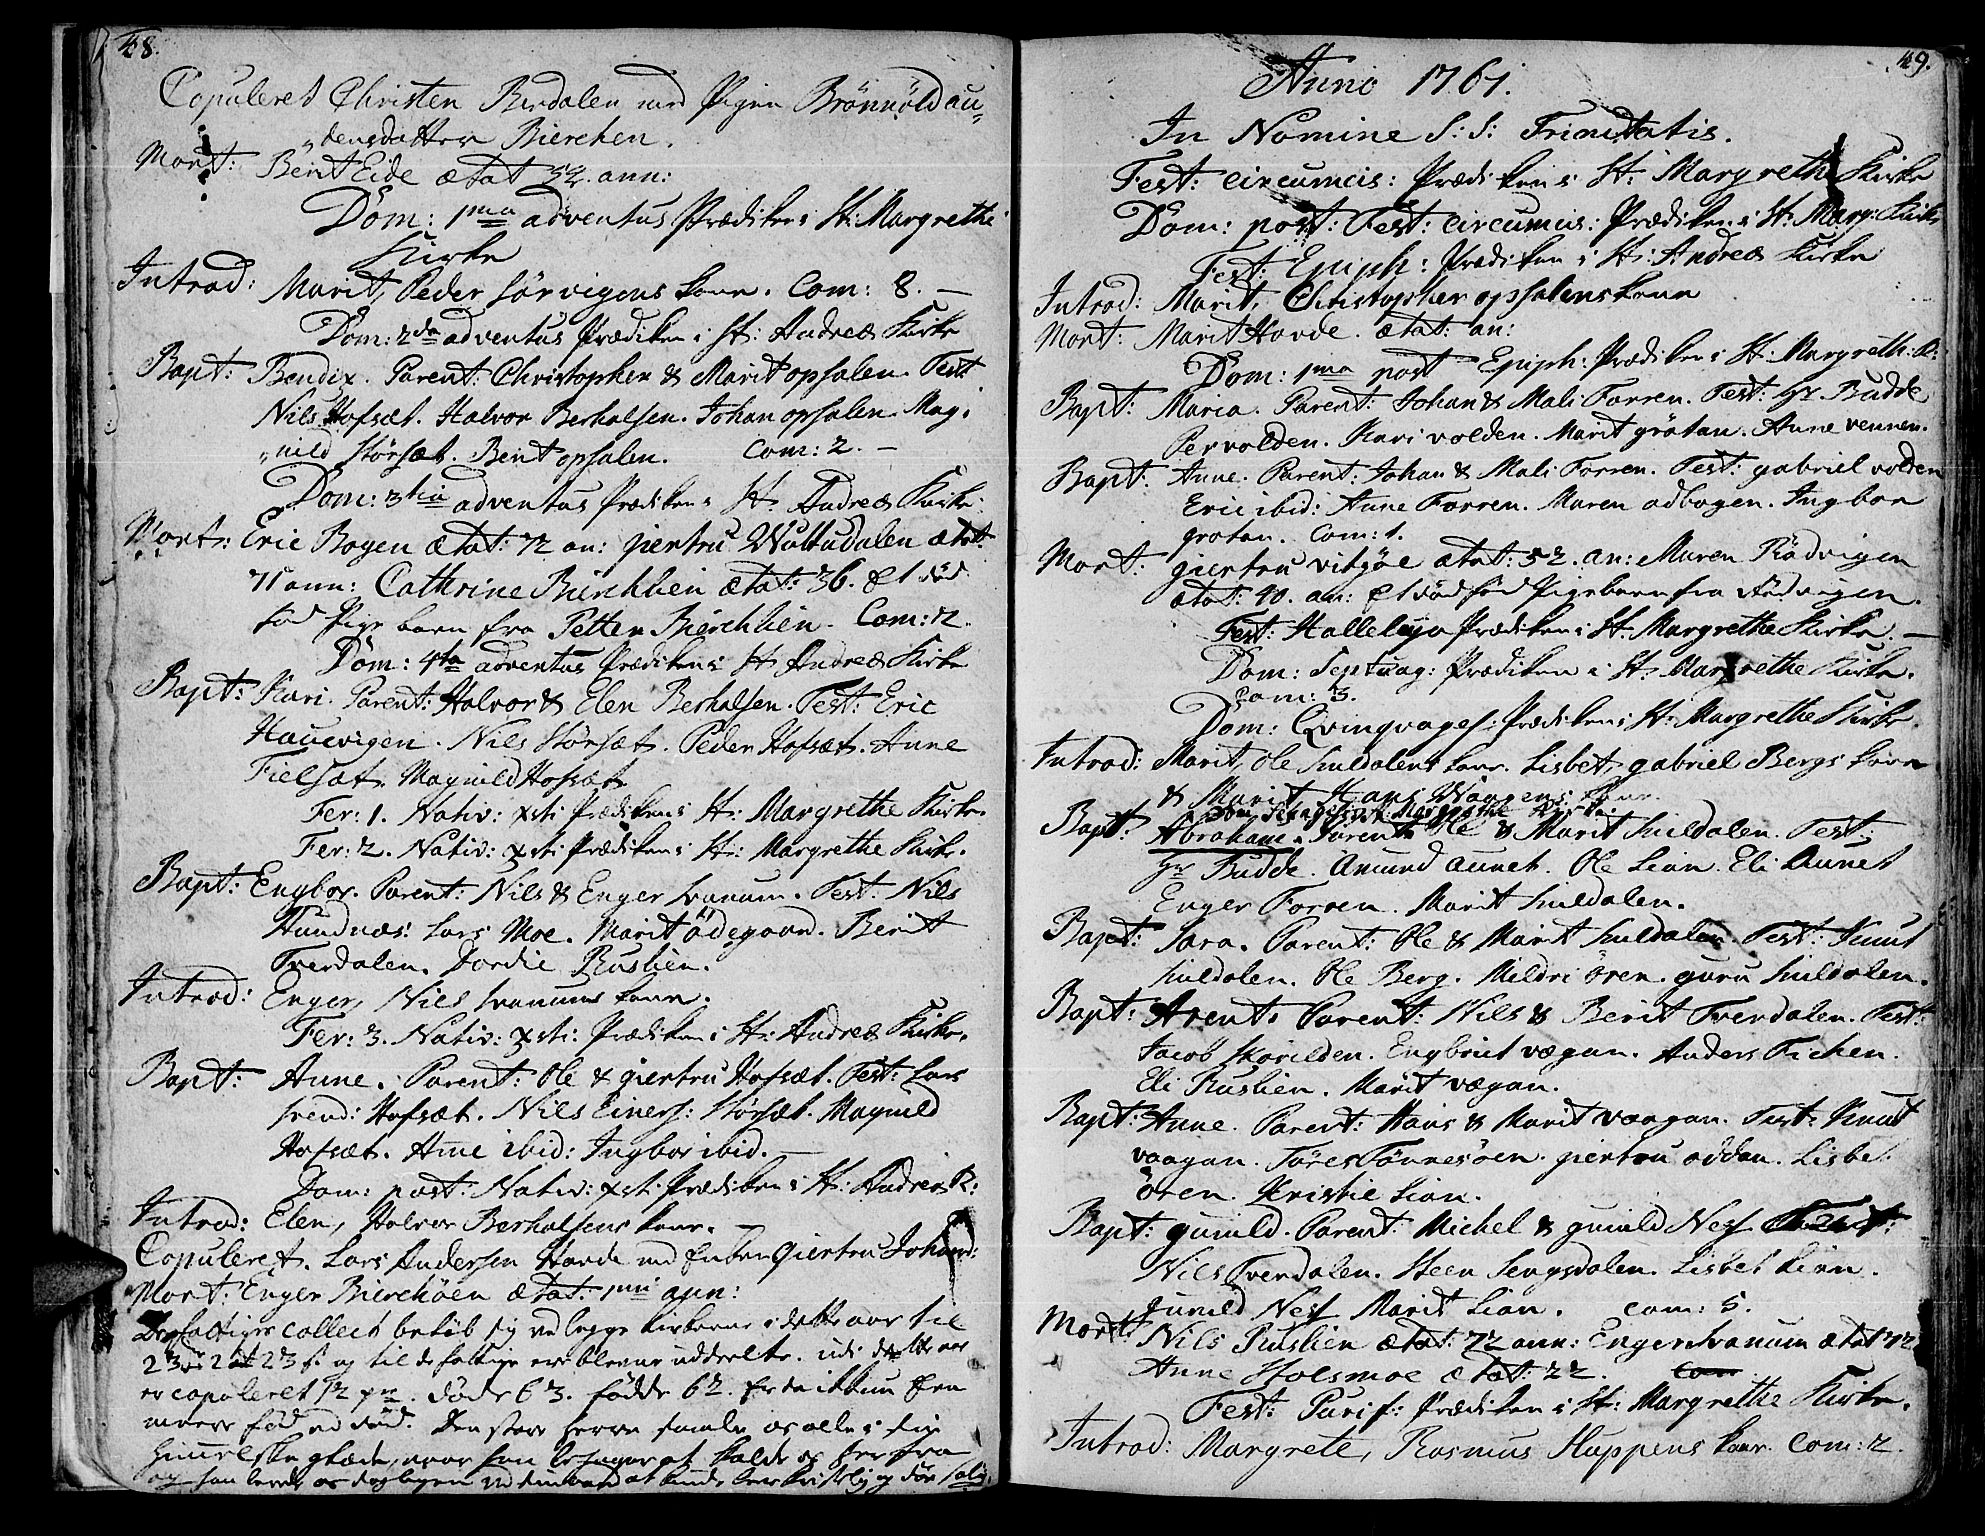 48.
Copuleret Christen Berdalen med Pigen Brönnild au-
densdatter Bierchen.
Mort: Berit Eide ætat 32. ann:
Dom: 1ma adventus Prædiken i St: Margrethe
Kirke
Introd: Marit, Peder Sörvigens kone. Com: 8. —
Dom: 2da adventus Prædiken i St: Andreæ Kirke
Bapt: Bendix. Parent: Christopher & Marit opsalen. Test:
Nils Hofsæt. Halvor Berhalsen. Johan opsalen. Mag-
nild Störsæt. Berit opsalen. Com: 2. —
Dom: 3tia adventus Prædiken i St. Andreæ Kirke.
Mort: Eric Bogen ætat: 72 an: giertru Wuttudalen ætat:
71 ann: Cathrine Bierchlien ætat: 36. & 1 död
föd Pige barn fra Petter Bierchlien. Com: 12.
Dom: 4ta adventus Prædiken i St Andreæ Kirke
Bapt: Kari. Parent: Halvor & Elen Berhalsen. Test: Eric
Hauevigen. Nils Störsæt. Peder Hofsæt. Anne
Fielsæt. Magnild Hofsæt
Fer: 1. Nativ: xsti Prædiken i St: Margrethe Kirke.
Fer: 2. Nativ: xsti Prædiken i St: Margrethe Kirke.
Bapt: Engbor. Parent: Nils & Enger Svanum. Test: Nils
Hundnæs. Lars Moe. Marit ödegaard. Berit
Tverdalen. Dordie Ruslien.
Introd: Enger, Nils Svanums kone.
Fer: 3. Nativ: xsti: Prædiken i St: Andreæ Kirke.
Bapt: Anne. Parent: Ole & giertru Hofsæt. Test: Lars
Svend: Hofsæt. Nils Einers: Störsæt. Magnild
Hofsæt. Anne ibid: Ingbor ibid. —
Dom: post: Nativ: xsti Prædiken i St: Andreæ K:
Introd: Elen, Halvor Berhalsens kone. —
Copuleret. Lars Andersen Hovde med Enken Giertru Johans:
Mort: Enger Bierchöen ætat: 1mi ann:
fattiges collect belöb sig ved begge kirkerne i dette aar til
og til de fattige er blevne uddeelte. udi dette aar
er copuleret 12 par. döde 63. födde 62.
Den store Herre samle os alle i sin
Himmelske glæde, naar han behager at kalde os her fra
49.
Anno 1761.
In Nomine S: S: Trinitatis.
Fest: circumcis: Prædiken i St: Margrethe Kirke
Dom: post: Fest: circumcis: Prædiken i St: Marg: Kirke
Fest: Epiph: Prædiken i St: Andreæ Kirke
Introd: Marit, Christopher opsalens kone
Mort: Marit Hovde. ætat: an:
Dom: 1ma post Epiph: Prædiken i St: Margreth: K:
Bapt: Maria. Parent: Johan & Mali Forren. Test: Hr Budde
Per volden. Kari volden. Marit grötan. Anne vennen.
Bapt: Anne. Parent: Johan & Mali Forren. Test: gabriel volden
Eric ibid: Anne Forren. Maren odbogen. Ingbor
grotan. Com: 1.
Mort: giertru vitzöe ætat: 52. an: Maren Rödvigen
ætat: 40. an: & 1 dödföd Pigebarn fra Rödvigen.
Fest: Halleluja Prædiken i St. Margrethe Kirke. —
Dom: Septuag: Prædiken i St: Margrethe Kirke.
Com: 3.
Dom: Qvinqvages: Prædiken i St: Margrethe Kirke.
Introd: Marit, Ole Suldalens kone. Lisbet, gabriel Bergs kone
& Marit Hans Waagens kone.
Bapt: Abraham. Parent: Ole & Marit Suldalen. Test:
Hr Budde. Amund aunet. Ole Lian. Eli Aunet
Enger Forren. Marit Suldalen.
Bapt: Sara. Parent: Ole & Marit Suldalen. Test: Knut
Suldalen. Ole Berg. Mildri ören. guru Suldalen.
Bapt: Arent. Parent: Nils & Berit Tverdalen. Test:
Jacob Skarilden. Engbrict vægan. Anders Fichen.
Eli Ruslien. Marit vægan.
Bapt: Anne. Parent: Hans & Marit vaagan. Test: Knut
vaagan. Töres Tönnesöen. giertru odden. Lisbet
ören. Kristie Lian.
Bapt: gunild. Parent: Michel & gunild Nes. Test:
Nils Tverdalen. Steen Sengsdalen. Lisbet Lian.
gunild Nes Marit Lian. com: 5.
Mort: Nils Ruslien ætat: 72 ann: Enger Svanum ætat 72
Anne Holsmoe ætat: 22. Com
Fest: Purif: Prædiken i St: Margrethe Kirke.
Introd: Margrete, Rasmus Huppens kone. Com: 12.